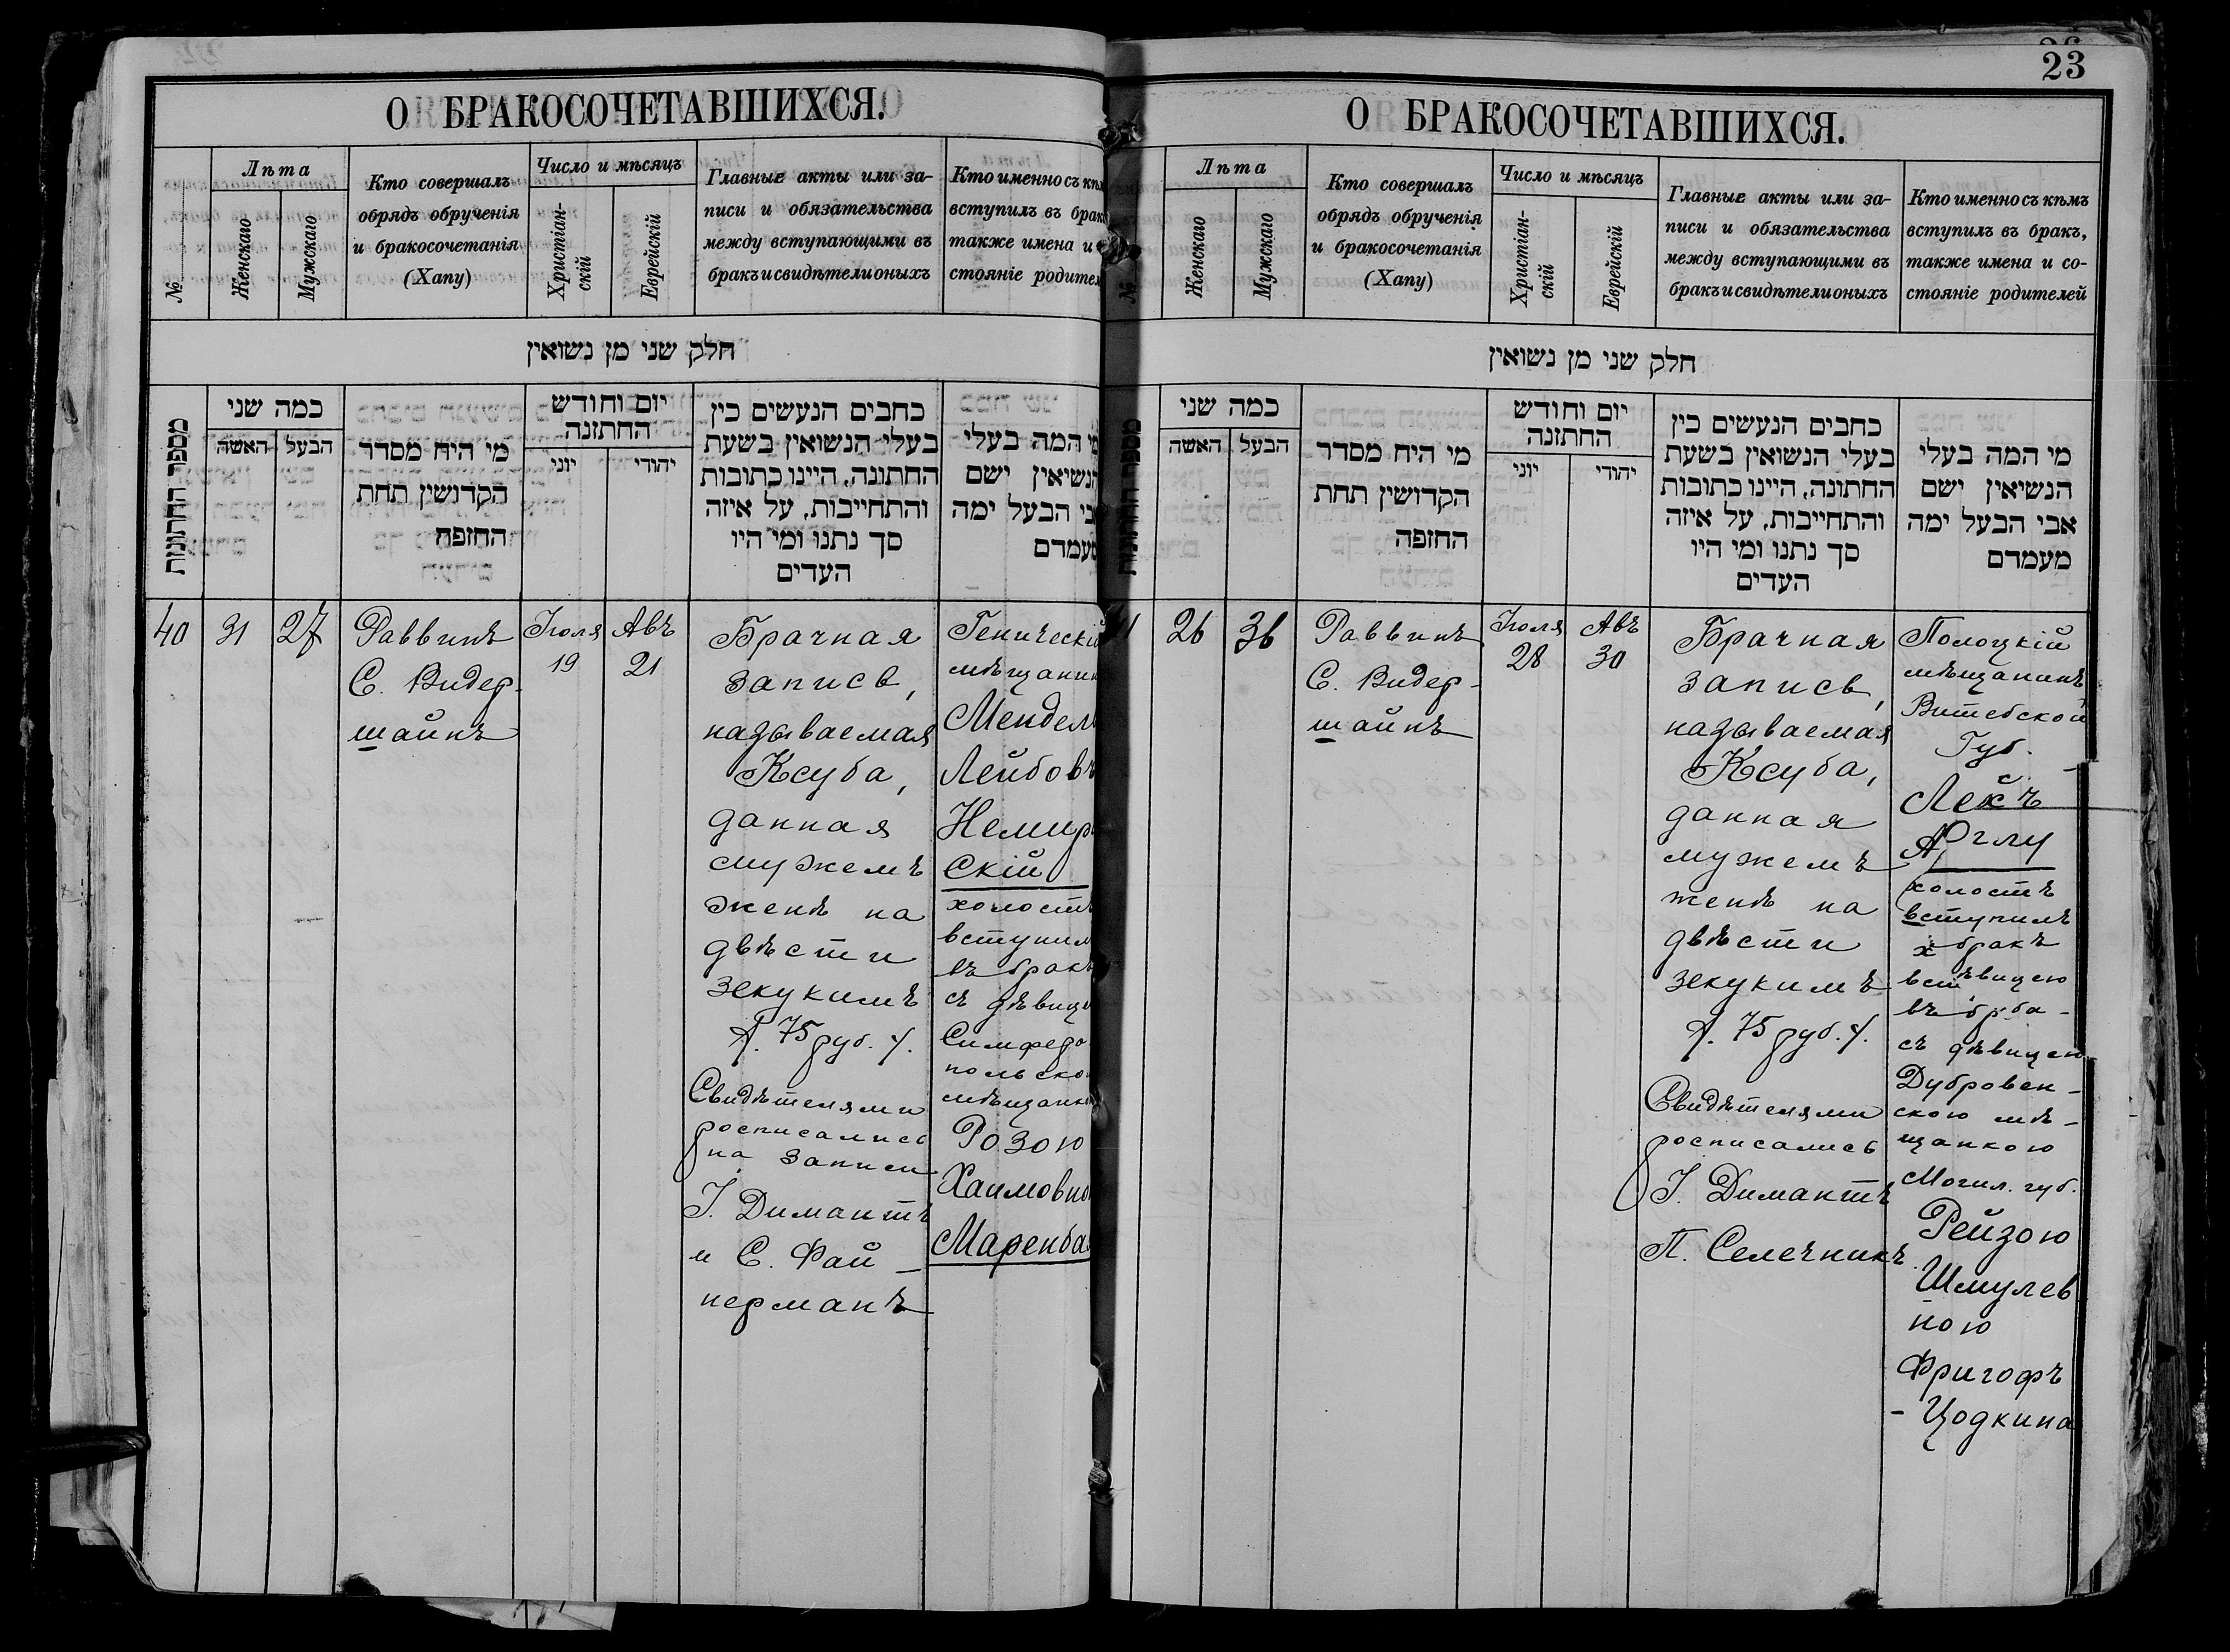 О БРАКОСОЧЕТАВШИХСЯ.
№
Лѣта
Женскаго
Мужскаго
Кто совершалъ
обрядъ обрученія
и бракосочетанія
(Хапу)
Число и мѣсяцъ
Христіан-
скій
Еврейскій
Главные акты или за-
писи и обязательства
между вступающими въ
бракъ и свидѣтели оныхъ
Кто именно съ
вступилъ въ
также имена и
стояніе
חלק שני מן נשואין
מספר החתונות
כמה שני
האשה
הבעל
מי היה מסדר
הקדושין תחת
החופה
יום וחודש
החתונה
יוני
יהודי
כתבים הנעשים בין
בעלי הנשואין בשעת
החתונה, היינו כתובות
והתחייבות, על איזה
סך נתנו ומי היו
העדים
המה בעלי
הנשיאין ישם
הבעל ימה
מעמדם
40
31
27
Раввинъ
С. Видер-
шайнъ
Іюля
19
Авъ
21
Брачная
запись,
называемая
Ксуба,
данная
мужемъ
женѣ на
двѣсти
зекукимъ
75 руб.
Свидѣтелями
росписались
на записи
І. Димантъ
и С. Фай-
нерманъ
Геническій
мѣщанин
Мендель
Лейбовъ
Немир
скій
холостъ
вступил
въ бракъ
съ дѣвице
Симферо
польско
мѣщанко
Розою
Хаимовно
Маренба
23
О БРАКОСОЧЕТАВШИХСЯ.
№
Лѣта
Женскаго
Мужскаго
Кто совершалъ
обрядъ обрученія
и бракосочетанія
(Хапу)
Число и мѣсяцъ
Христіан-
скій
Еврейскій
Главные акты или за-
писи и обязательства
между вступающими въ
бракъ и свидѣтели оныхъ
Кто именно съ кѣмъ
вступилъ въ бракъ,
также имена и со-
стояніе родителей
חלק שני מן נשואין
כמה שני
האשה
הבעל
מי היה מסדר
הקדושין תחת
החופה
יום וחודש
החתונה
יוני
יהודי
כתבים הנעשים בין
בעלי הנשואין בשעת
החתונה, היינו כתובות
והתחייבות, על איזה
סך נתנו ומי היו
העדים
מי המה בעלי
הנשיאין ישם
אבי הבעל ימה
מעמדם
26
36
Раввинъ
С. Видер-
шайнъ
Іюля
28
Авъ
30
Брачная
запись,
называемая
Ксуба,
данная
мужемъ
женѣ на
двѣсти
зекукимъ
75 руб.
Свидѣтелями
росписались
І. Димантъ
П. Селечникъ
Полоцкій
мѣщанинъ
Витебской
Губ.
холостъ
вступилъ
бракъ
съ дѣвицею
Дубровен-
скою мѣ-
щанкою
Могил. губ.
Рейзою
Шмулев
ною
Фригофъ
- Цодкина